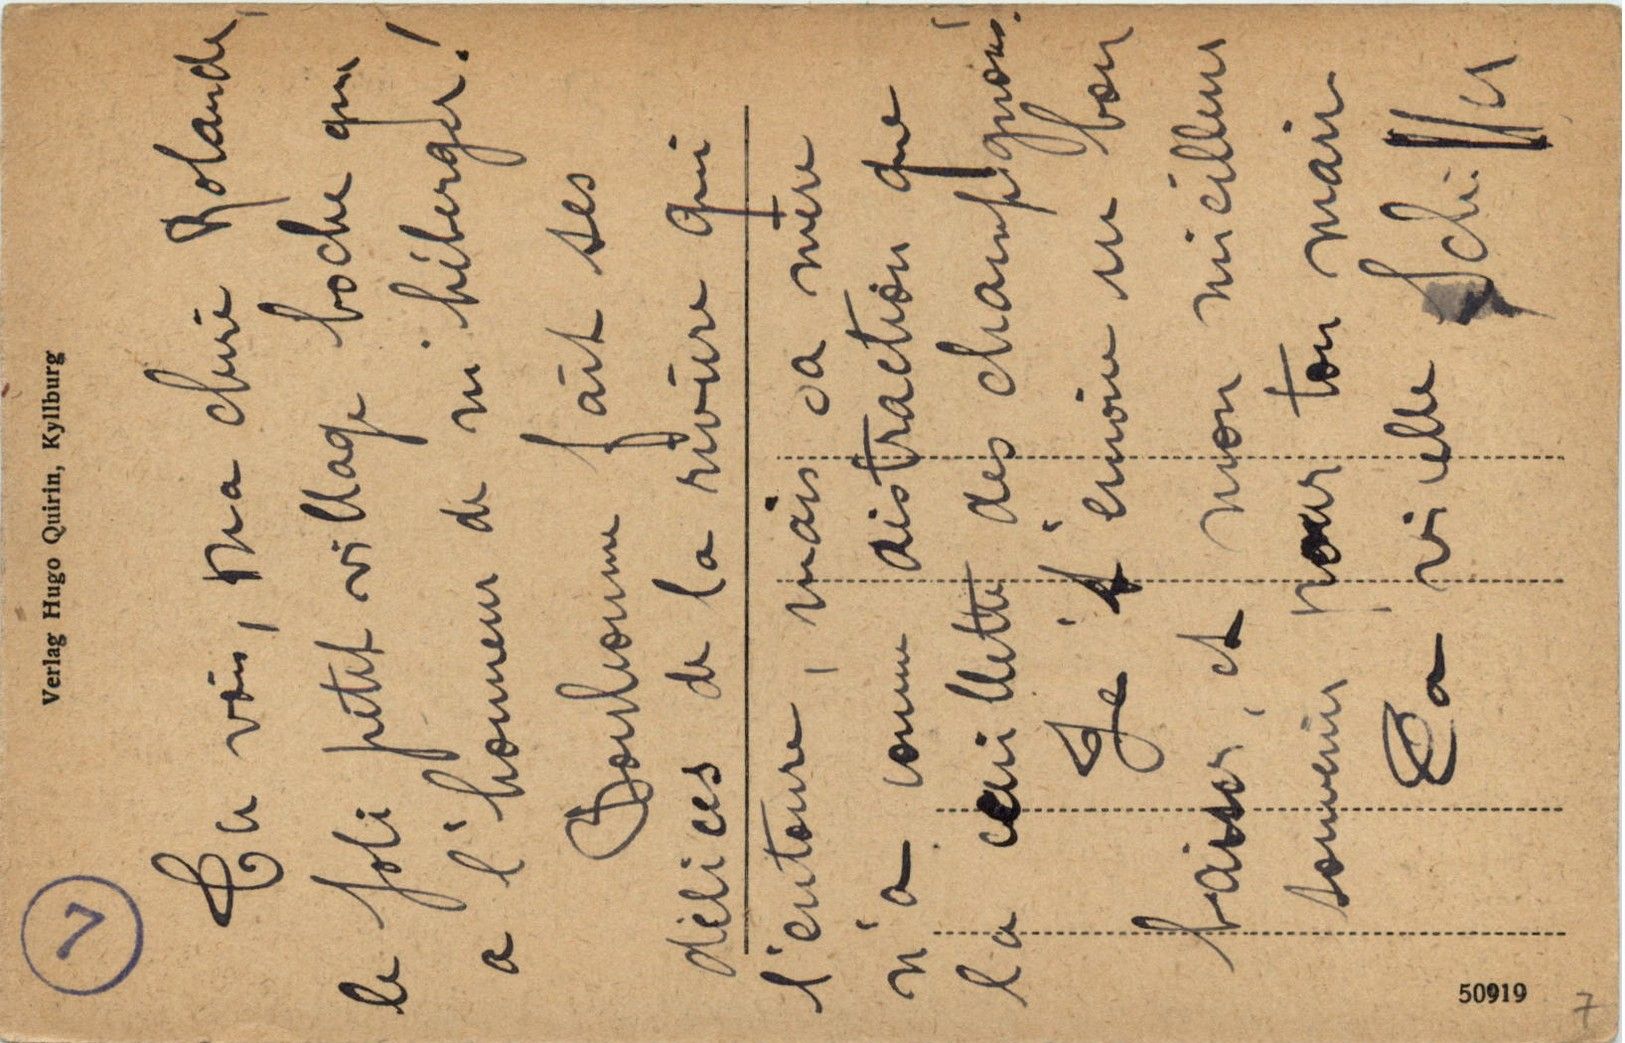 Tu vois, ma chère Rolande,
le joli petit village boche qui
a l'honneur de m'héberger!
Bonhomme fait ses
délices de la rivière qui
l'entoure, mais sa mère
n'a comme distraction que
la cueillette des champignons.
Je t'envoie un bon
baiser, et mon meilleur
souvenir pour ton mari
Ta vieille
Verlag Hugo Quirin, Kyllburg
7
50919
7